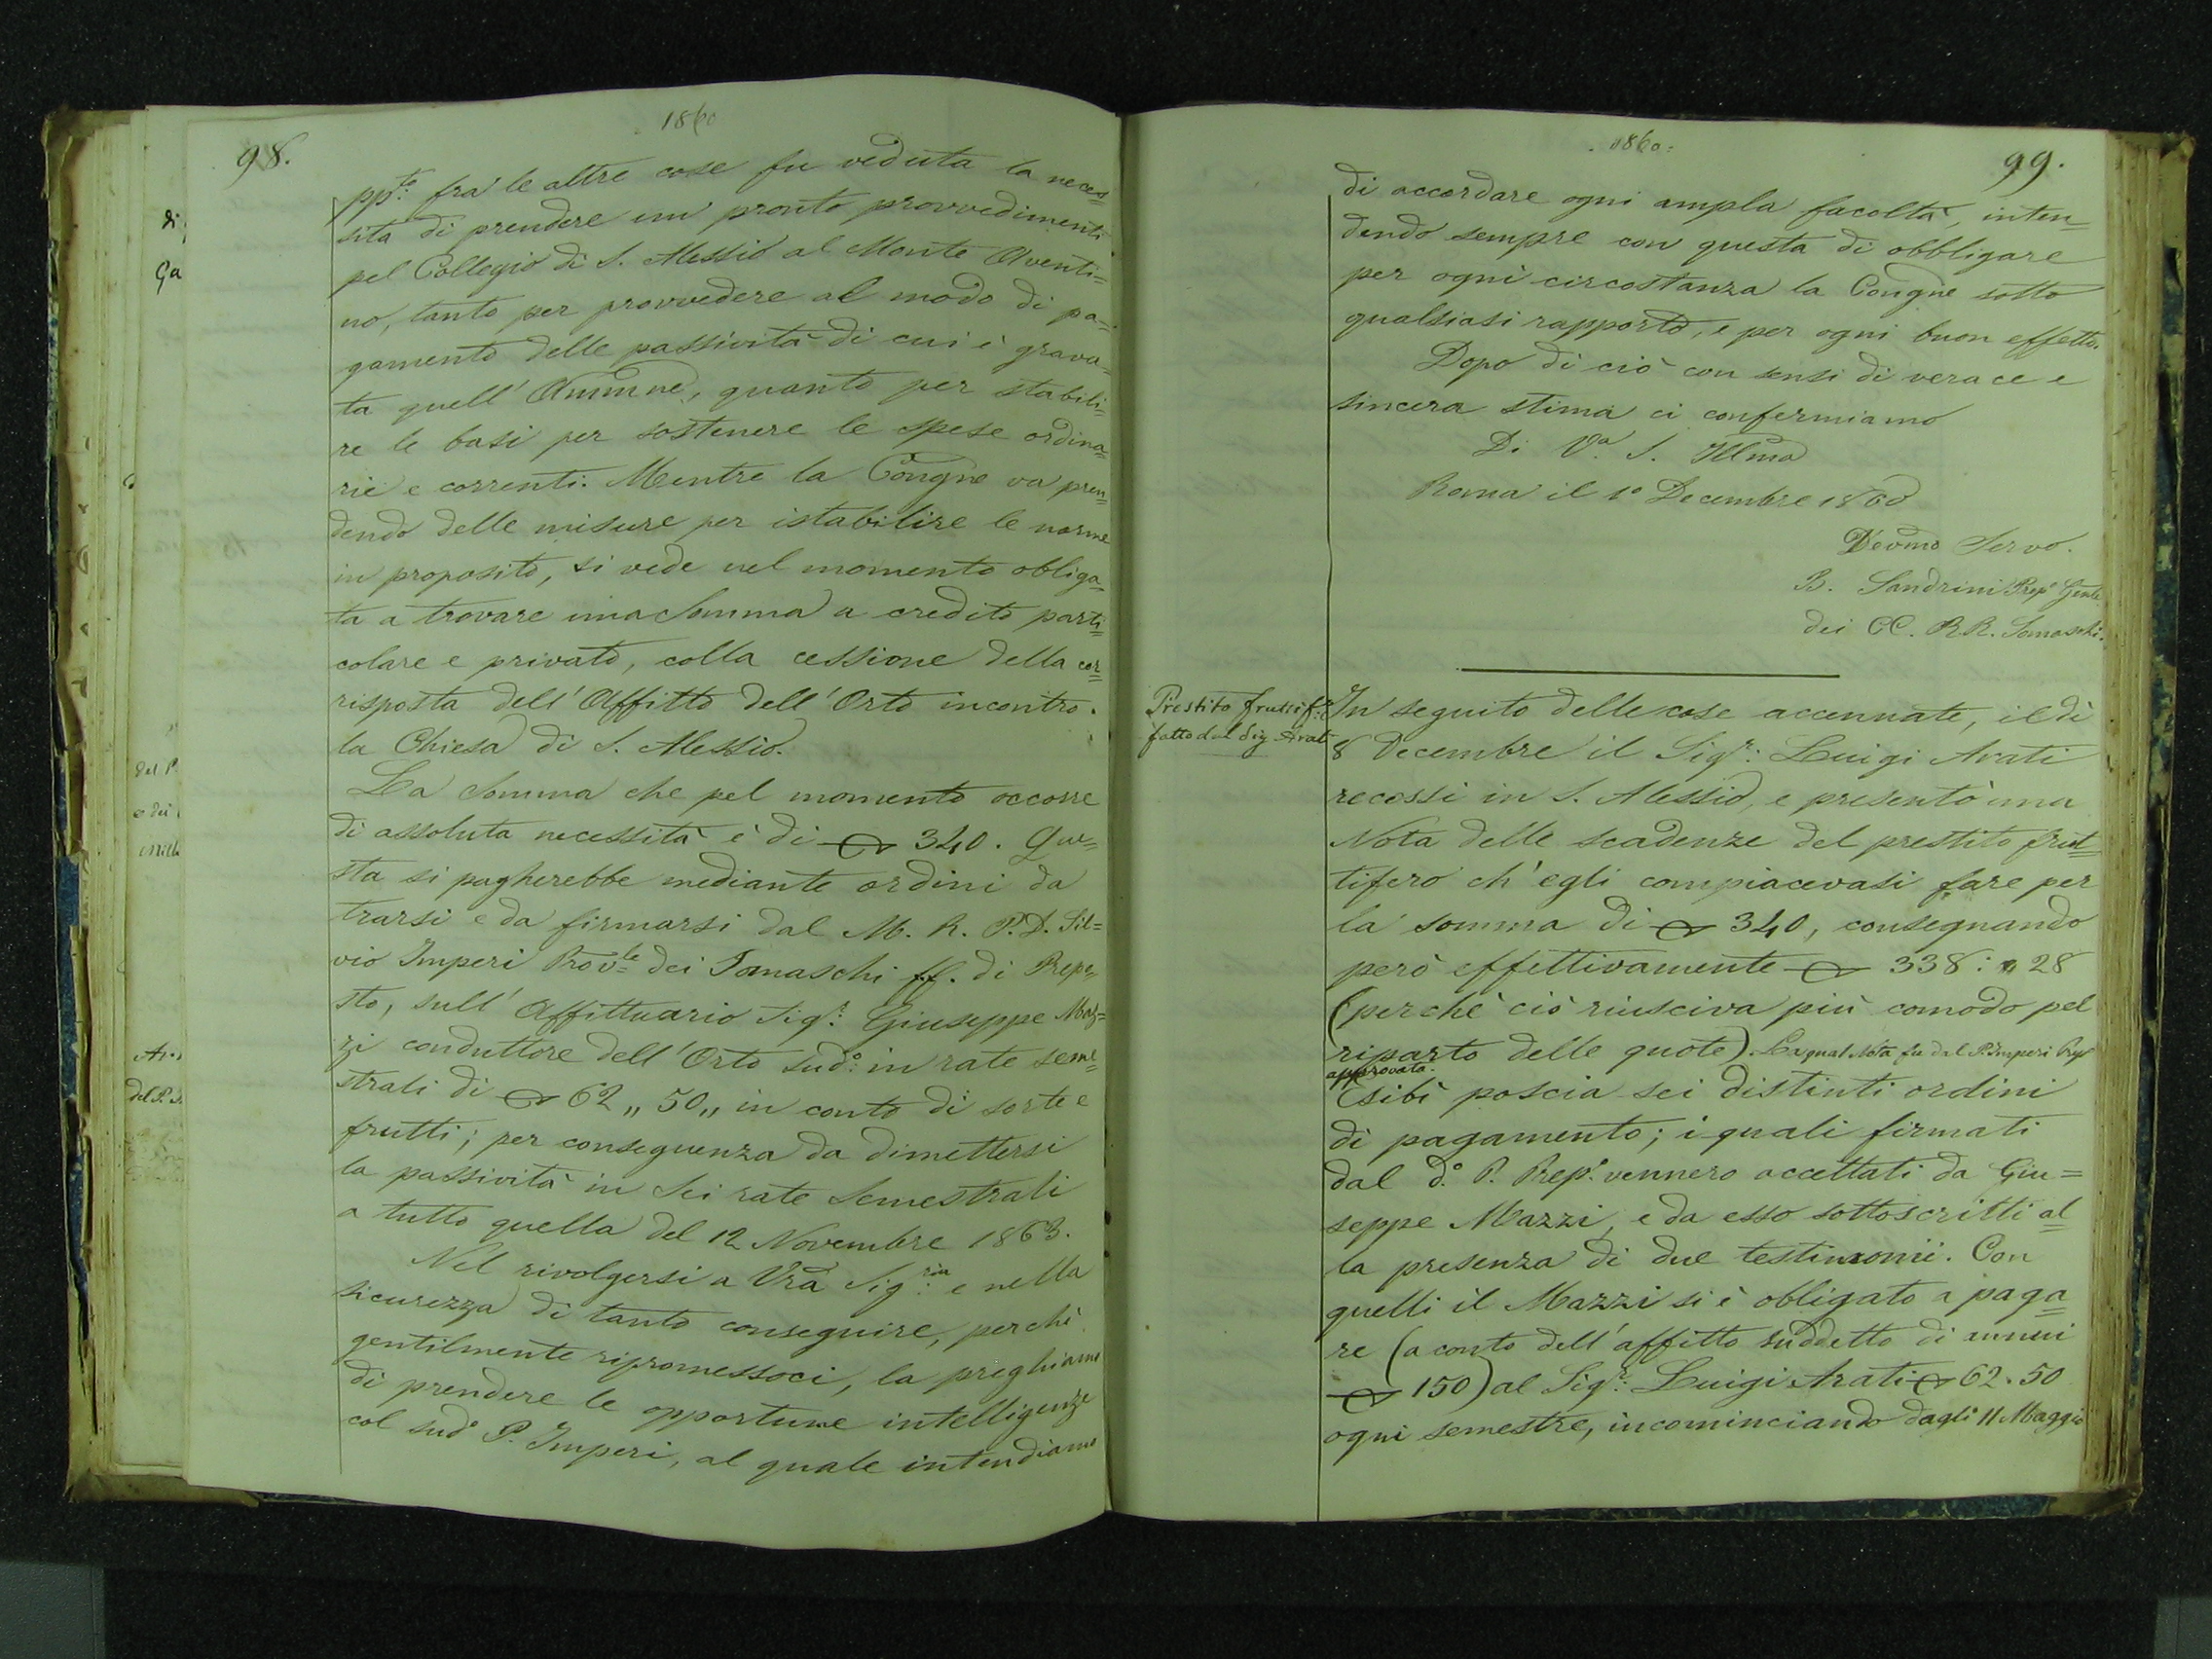 1860
98.
pp.te frà le altre cose fu veduta la neces=
sità di prendere un pronto provvedimento
pel Collegio di S. Alessio al Monte Aventi=
no, tanto per provvedere al modo di pa=
gamento delle passività di cui è grava=
ta quell' Ammne, quanto per stabili=
re le basi per sostenere le spese ordina=
rie e correnti. Mentre la Congne va pren=
dendo delle misure per istabilire le norme
in proposito, si vede nel momento obliga=
ta a trovare una somma a credito parti=
colare e privato, colla cessione della cor=
risposta dell' Affitto dell' Orto incontro
la Chiesa di S. Alessio.
La somma che pel momento occorre
di assoluta necessità è di 340. Que=
sta si pagherebbe mediante ordini da
trarsi e da firmarsi dal M. R. P. D. Sil=
vio Imperi Prov.le dei Somaschi ff. di Prepo=
sto, sull' Affittuario Sig.r Giuseppe Maz=
zi conduttore dell' Orto sud.o in rate seme=
strali di 62,, 50,, in conto di sorte e
frutti; per conseguenza da dimettersi
la passività in sei rate semestrali
a tutto quella del 12 Novembre 1863.
Nel rivolgersi a Vra Sig.ria e nella
sicurezza di tanto conseguire, perchè
gentilmente ripromessoci, la preghiamo
di prendere le opportune intelligenze
col sudo P. Imperi, al quale intendiamo
di
Ga
del P.
e dei
del P.
1860:
99.
di accordare ogni ampla facoltà, inten=
dendo sempre con questa di obbligare
per ogni circostanza la Congne sotto
qualsiasi rapporto, e per ogni buon effetto.
Dopo di ciò con sensi di verace e
sincera stima ci confermiamo
Di V.a S. Illma
Roma il 1o Decembre 1860
Devomo Servo.
B. Sandrini Prepo Genle
dei CC. RR. Somaschi.
Prestito fruttif.o
fatto dal Sig. Arati
In seguito delle cose accennate, il dì
8 Decembre il Sig.r: Luigi Arati
recossi in S. Alessio, e presentò una
Nota delle scadenze del prestito frut=
tifero ch' egli compiacevasi fare per
la somma di 340, consegnando
però effettivamente 338: 28
(perchè ciò riusciva più comodo pel
riparto delle quote). La qual Nota fu dal P. Imperi Prepo
approvata.
Esibì poscia sei distinti ordini
di pagamento; i quali firmati
dal d.o P. Prep.o vennero accettati da Giu=
seppe Mazzi, e da esso sottoscritti al=
la presenza di due testimonii. Con
quelli il Mazzi si è obligato a paga=
re (a conto dell' affitto suddetto di annui
150) al Sig.r: Luigi Arati 62.50
ogni semestre, incominciando dagli 11 Maggio